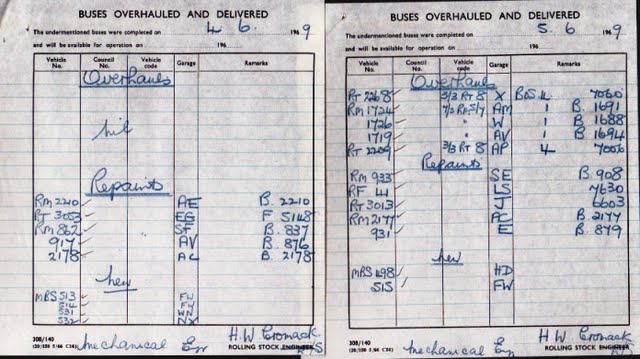 BUSES OVERHAULED AND DELIVERED
The undermentioned buses were completed on 4 6. 1969
and will be available for operation on 196
Vehicle No. Council No. Vehicle code Garage Remarks
Overhauls
nil
Repaints
RM 2210 AE B. 2210
RT 3053 EG F 5148
RM 862 SF B. 837
917 AV B. 876
2178 AC B. 2178
new
MBS 513 FW
514
531
532 NX
308/140
Mechanical Eng H.W Cromack
ROLLING STOCK ENGINEER
BUSES OVERHAULED AND DELIVERED
The undermentioned buses were completed on 5. 6 1969
and will be available for operation on 196
Vehicle No. Council No. Vehicle code Garage Remarks
Overhauls
RT 2268 3/3 RT 8 X 7060
RM 1724 AM 1 B. 1691
1726 " W 1 B. 1688
1719 " AV 1 B. 1694
RT 2209 3/3 RT 8 AP 4 7006
Repaints
RM 933 SE B. 908
RF 44 LS 7630
RT 3013 J 6603
RM 2177 AC B. 2177
931 E B. 879
new
MBS 498 HD
515 FW
308/140
Mechanical Eng H W Cromack
ROLLING STOCK ENGINEER